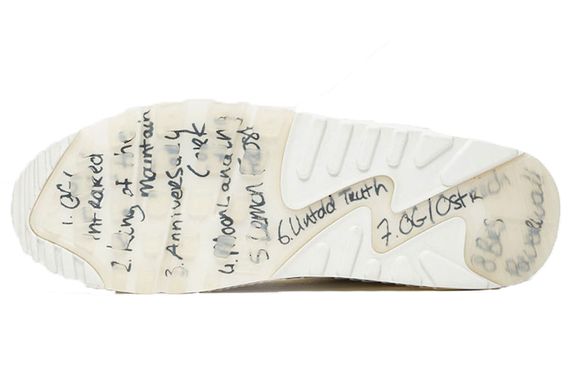 1. OG/
infrared
2. King of the
mountain
3. Anniversary
Cork
4. Moon Landing
5 Lemon Frost
6. Untold Truth
7. OG/Ostrich